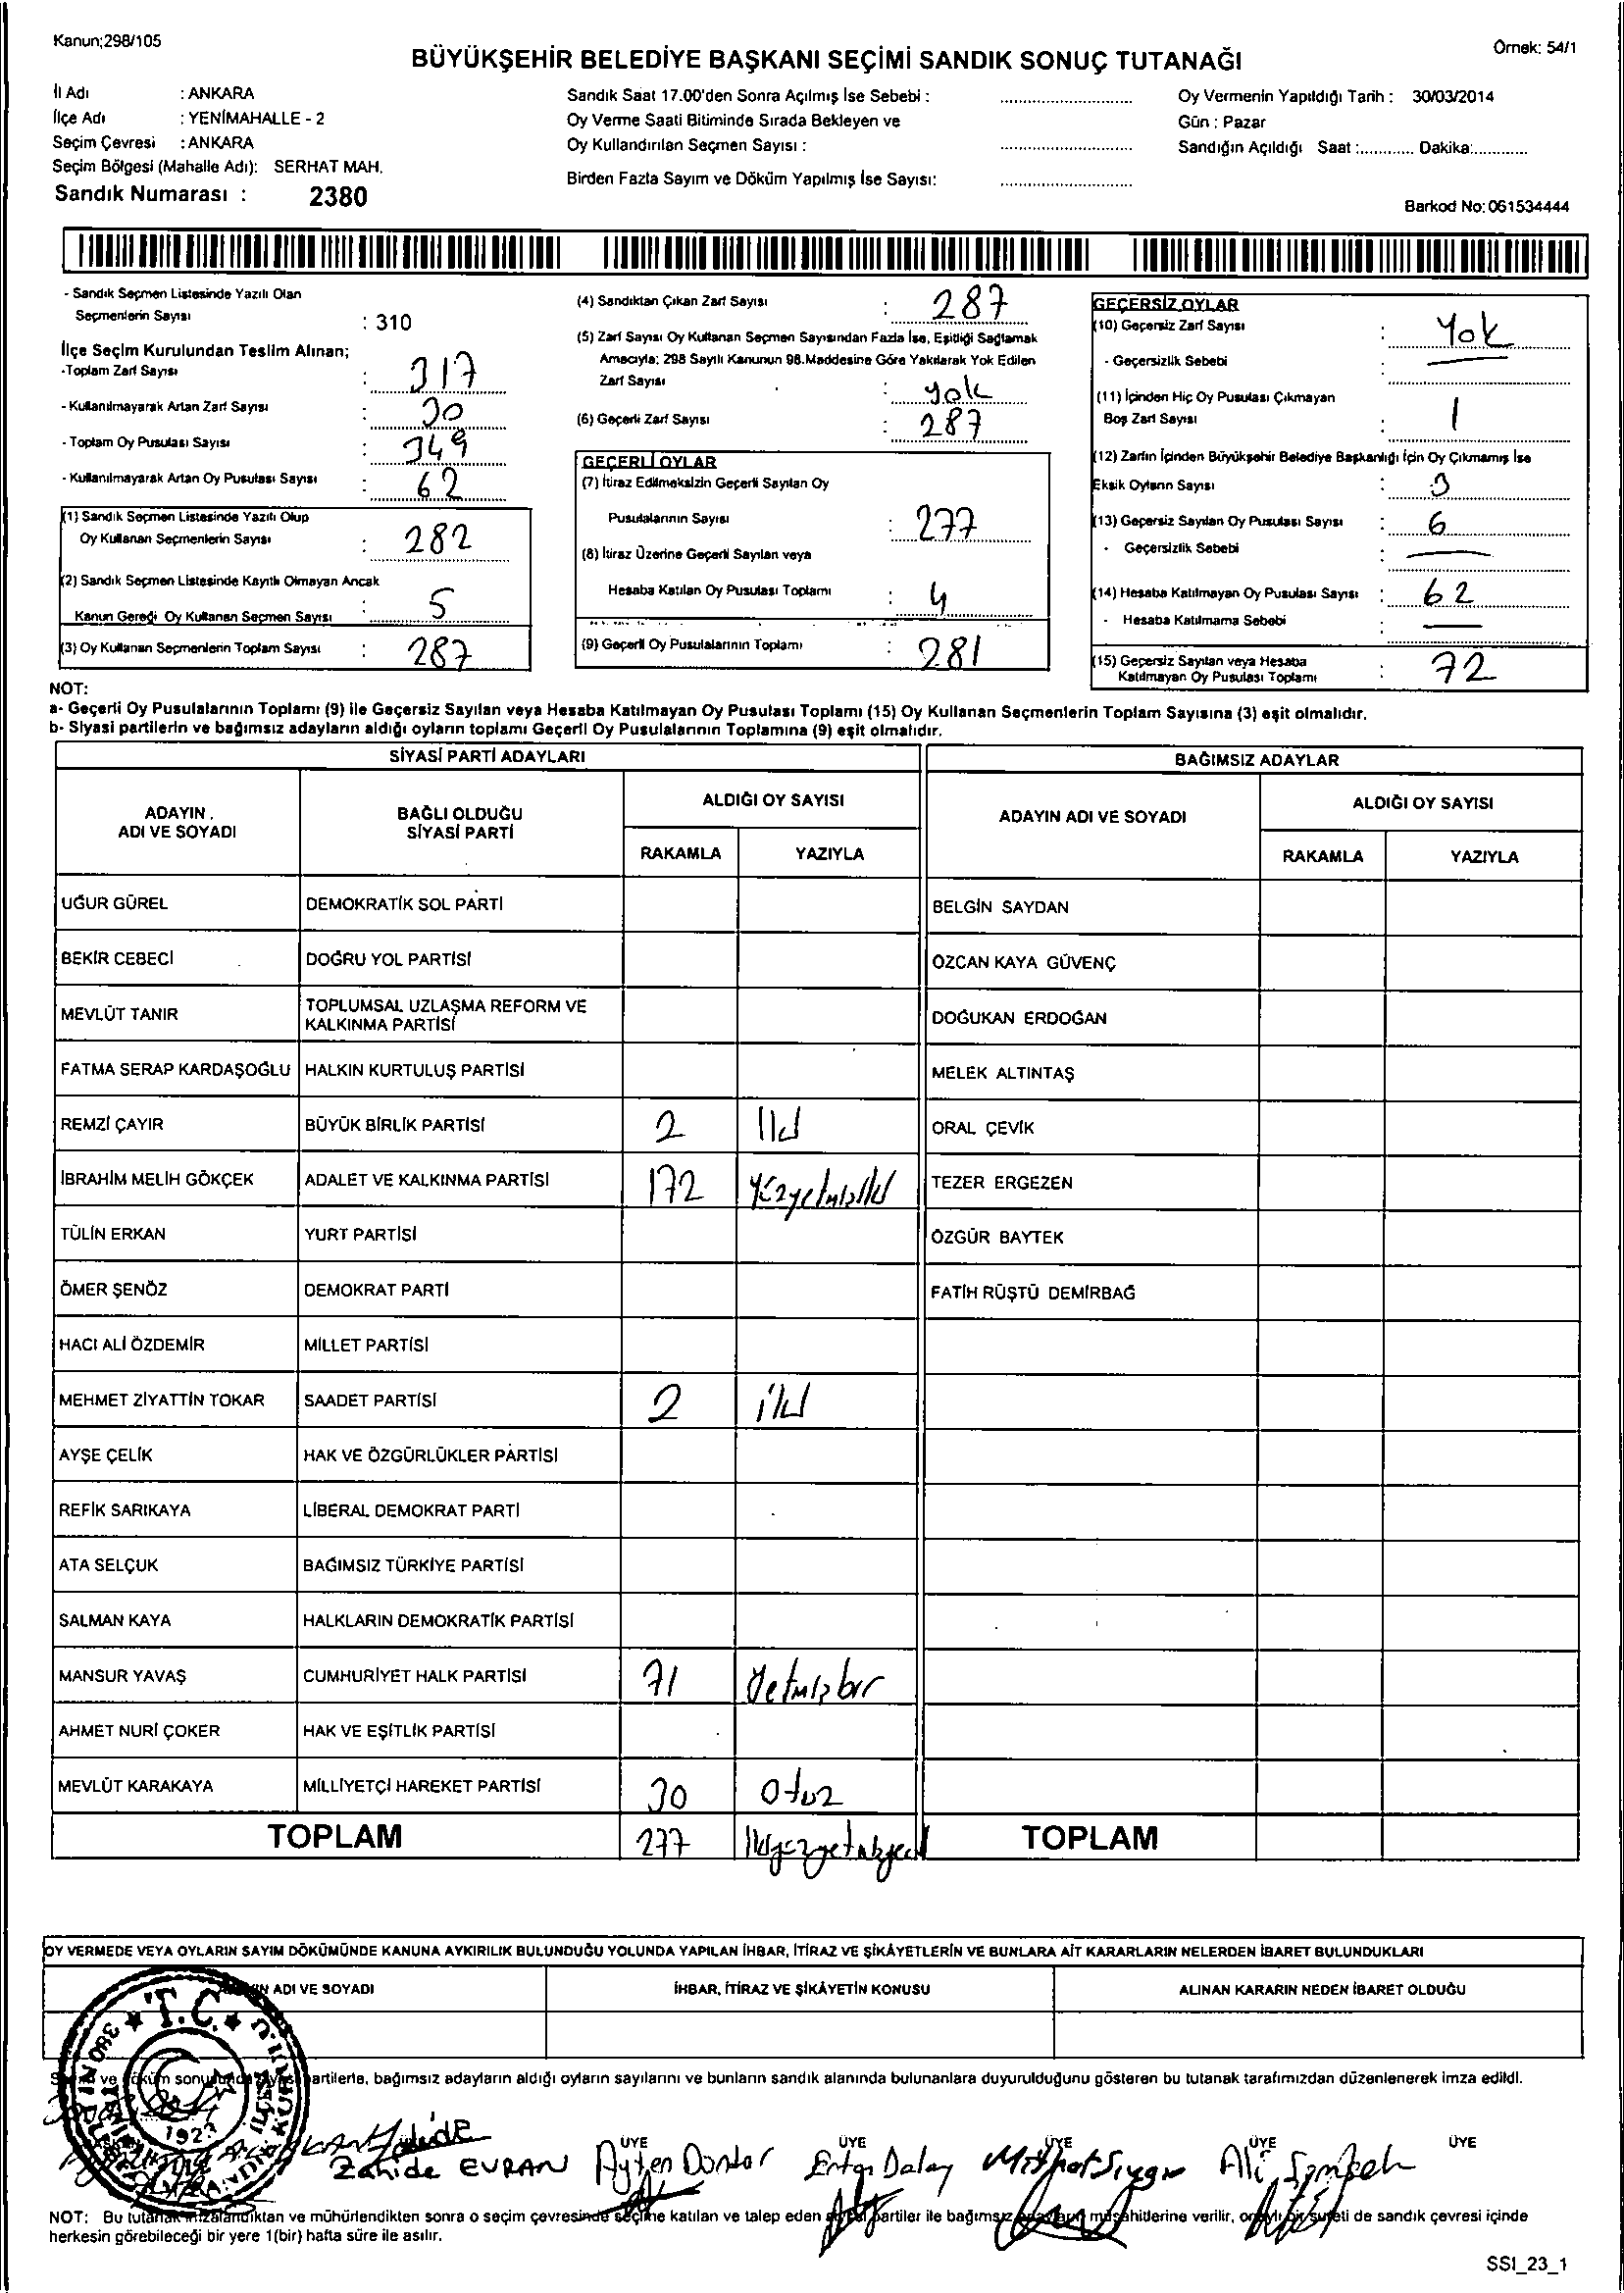 Kanun;298/105
Örnek: 54/1
BÜYÜKŞEHİR BELEDİYE BAŞKANI SEÇİMİ SANDIK SONUÇ TUTANAĞI
İl Adı : ANKARA
İlçe Adı : YENİMAHALLE - 2
Seçim Çevresi : ANKARA
Seçim Bölgesi (Mahalle Adı): SERHAT MAH.
Sandık Numarası : 2380
Sandık Saat 17.00'den Sonra Açılmış İse Sebebi :
Oy Verme Saati Bitiminde Sırada Bekleyen ve
Oy Kullandırılan Seçmen Sayısı :
Birden Fazla Sayım ve Döküm Yapılmış İse Sayısı:
Oy Vermenin Yapıldığı Tarih : 30/03/2014
Gün : Pazar
Sandığın Açıldığı Saat :............ Dakika:............
Barkod No: 061534444
- Sandık Seçmen Listesinde Yazılı Olan
Seçmenlerin Sayısı : 310
İlçe Seçim Kurulundan Teslim Alınan;
-Toplam Zarf Sayısı : 317
- Kullanılmayarak Artan Zarf Sayısı : 30
- Toplam Oy Pusulası Sayısı : 349
- Kullanılmayarak Artan Oy Pusulası Sayısı : 62
(1) Sandık Seçmen Listesinde Yazılı Olup
Oy Kullanan Seçmenlerin Sayısı : 282
(2) Sandık Seçmen Listesinde Kayıtlı Olmayan Ancak
Kanun Gereği Oy Kullanan Seçmen Sayısı : 5
(3) Oy Kullanan Seçmenlerin Toplam Sayısı : 287
(4) Sandıktan Çıkan Zarf Sayısı : 287
(5) Zarf Sayısı Oy Kullanan Seçmen Sayısından Fazla İse, Eşitliği Sağlamak
Amacıyla; 298 Sayılı Kanunun 98.Maddesine Göre Yakılarak Yok Edilen
Zarf Sayısı : yok
(6) Geçerli Zarf Sayısı : 287
GEÇERLİ OYLAR
(7) İtiraz Edilmeksizin Geçerli Sayılan Oy
Pusulalarının Sayısı : 277
(8) İtiraz Üzerine Geçerli Sayılan veya
Hesaba Katılan Oy Pusulası Toplamı : 4
(9) Geçerli Oy Pusulalarının Toplamı : 281
GEÇERSİZ OYLAR
(10) Geçersiz Zarf Sayısı : Yok
- Geçersizlik Sebebi :
(11) İçinden Hiç Oy Pusulası Çıkmayan
Boş Zarf Sayısı : 1
(12) Zarfın İçinden Büyükşehir Belediye Başkanlığı İçin Oy Çıkmamış İse
Eksik Oyların Sayısı : 3
(13) Geçersiz Sayılan Oy Pusulası Sayısı : 6
- Geçersizlik Sebebi :
(14) Hesaba Katılmayan Oy Pusulası Sayısı : 62
- Hesaba Katılmama Sebebi :
(15) Geçersiz Sayılan veya Hesaba
Katılmayan Oy Pusulası Toplamı : 72
NOT:
a- Geçerli Oy Pusulalarının Toplamı (9) ile Geçersiz Sayılan veya Hesaba Katılmayan Oy Pusulası Toplamı (15) Oy Kullanan Seçmenlerin Toplam Sayısına (3) eşit olmalıdır.
b- Siyasi partilerin ve bağımsız adayların aldığı oyların toplamı Geçerli Oy Pusulalarının Toplamına (9) eşit olmalıdır.
SİYASİ PARTİ ADAYLARI BAĞIMSIZ ADAYLAR
ADAYIN ADI VE SOYADI
BAĞLI OLDUĞU SİYASİ PARTİ
ALDIĞI OY SAYISI
RAKAMLA YAZIYLA
ADAYIN ADI VE SOYADI
ALDIĞI OY SAYISI
RAKAMLA YAZIYLA
UĞUR GÜREL DEMOKRATİK SOL PARTİ BELGİN SAYDAN
BEKİR CEBECİ DOĞRU YOL PARTİSİ ÖZCAN KAYA GÜVENÇ
MEVLÜT TANIR TOPLUMSAL UZLAŞMA REFORM VE KALKINMA PARTİSİ DOĞUKAN ERDOĞAN
FATMA SERAP KARDAŞOĞLU HALKIN KURTULUŞ PARTİSİ MELEK ALTINTAŞ
REMZİ ÇAYIR BÜYÜK BİRLİK PARTİSİ 2 İki ORAL ÇEVİK
İBRAHİM MELİH GÖKÇEK ADALET VE KALKINMA PARTİSİ 172 Yüzyetmişiki TEZER ERGEZEN
TÜLİN ERKAN YURT PARTİSİ ÖZGÜR BAYTEK
ÖMER ŞENÖZ DEMOKRAT PARTİ FATİH RÜŞTÜ DEMİRBAĞ
HACI ALİ ÖZDEMİR MİLLET PARTİSİ
MEHMET ZİYATTİN TOKAR SAADET PARTİSİ 2 iki
AYŞE ÇELİK HAK VE ÖZGÜRLÜKLER PARTİSİ
REFİK SARIKAYA LİBERAL DEMOKRAT PARTİ
ATA SELÇUK BAĞIMSIZ TÜRKİYE PARTİSİ
SALMAN KAYA HALKLARIN DEMOKRATİK PARTİSİ
MANSUR YAVAŞ CUMHURİYET HALK PARTİSİ 71 Yetmişbir
AHMET NURİ ÇOKER HAK VE EŞİTLİK PARTİSİ
MEVLÜT KARAKAYA MİLLİYETÇİ HAREKET PARTİSİ 30 Otuz
TOPLAM 277 İkiyüzyetmişyedi TOPLAM
OY VERMEDE VEYA OYLARIN SAYIM DÖKÜMÜNDE KANUNA AYKIRILIK BULUNDUĞU YOLUNDA YAPILAN İHBAR, İTİRAZ VE ŞİKÂYETLERİN VE BUNLARA AİT KARARLARIN NELERDEN İBARET BULUNDUKLARI
ADI VE SOYADI İHBAR, İTİRAZ VE ŞİKÂYETİN KONUSU ALINAN KARARIN NEDEN İBARET OLDUĞU
T.C.
1923
ve döküm sonucunda partilerle, bağımsız adayların aldığı oyların sayılarını ve bunların sandık alanında bulunanlara duyurulduğunu gösteren bu tutanak tarafımızdan düzenlenerek imza edildi.
ÜYE ÜYE ÜYE ÜYE ÜYE
Zahide EVRAN Ayten Dontar Ertan Dalay Mithat Ali Şimşek
NOT: Bu tutanak imzalandıktan ve mühürlendikten sonra o seçim çevresinde seçime katılan ve talep eden siyasi partiler ile bağımsız adayların müşahitlerine verilir, onaylı bir sureti de sandık çevresi içinde
herkesin görebileceği bir yere 1(bir) hafta süre ile asılır.
SSI_23_1